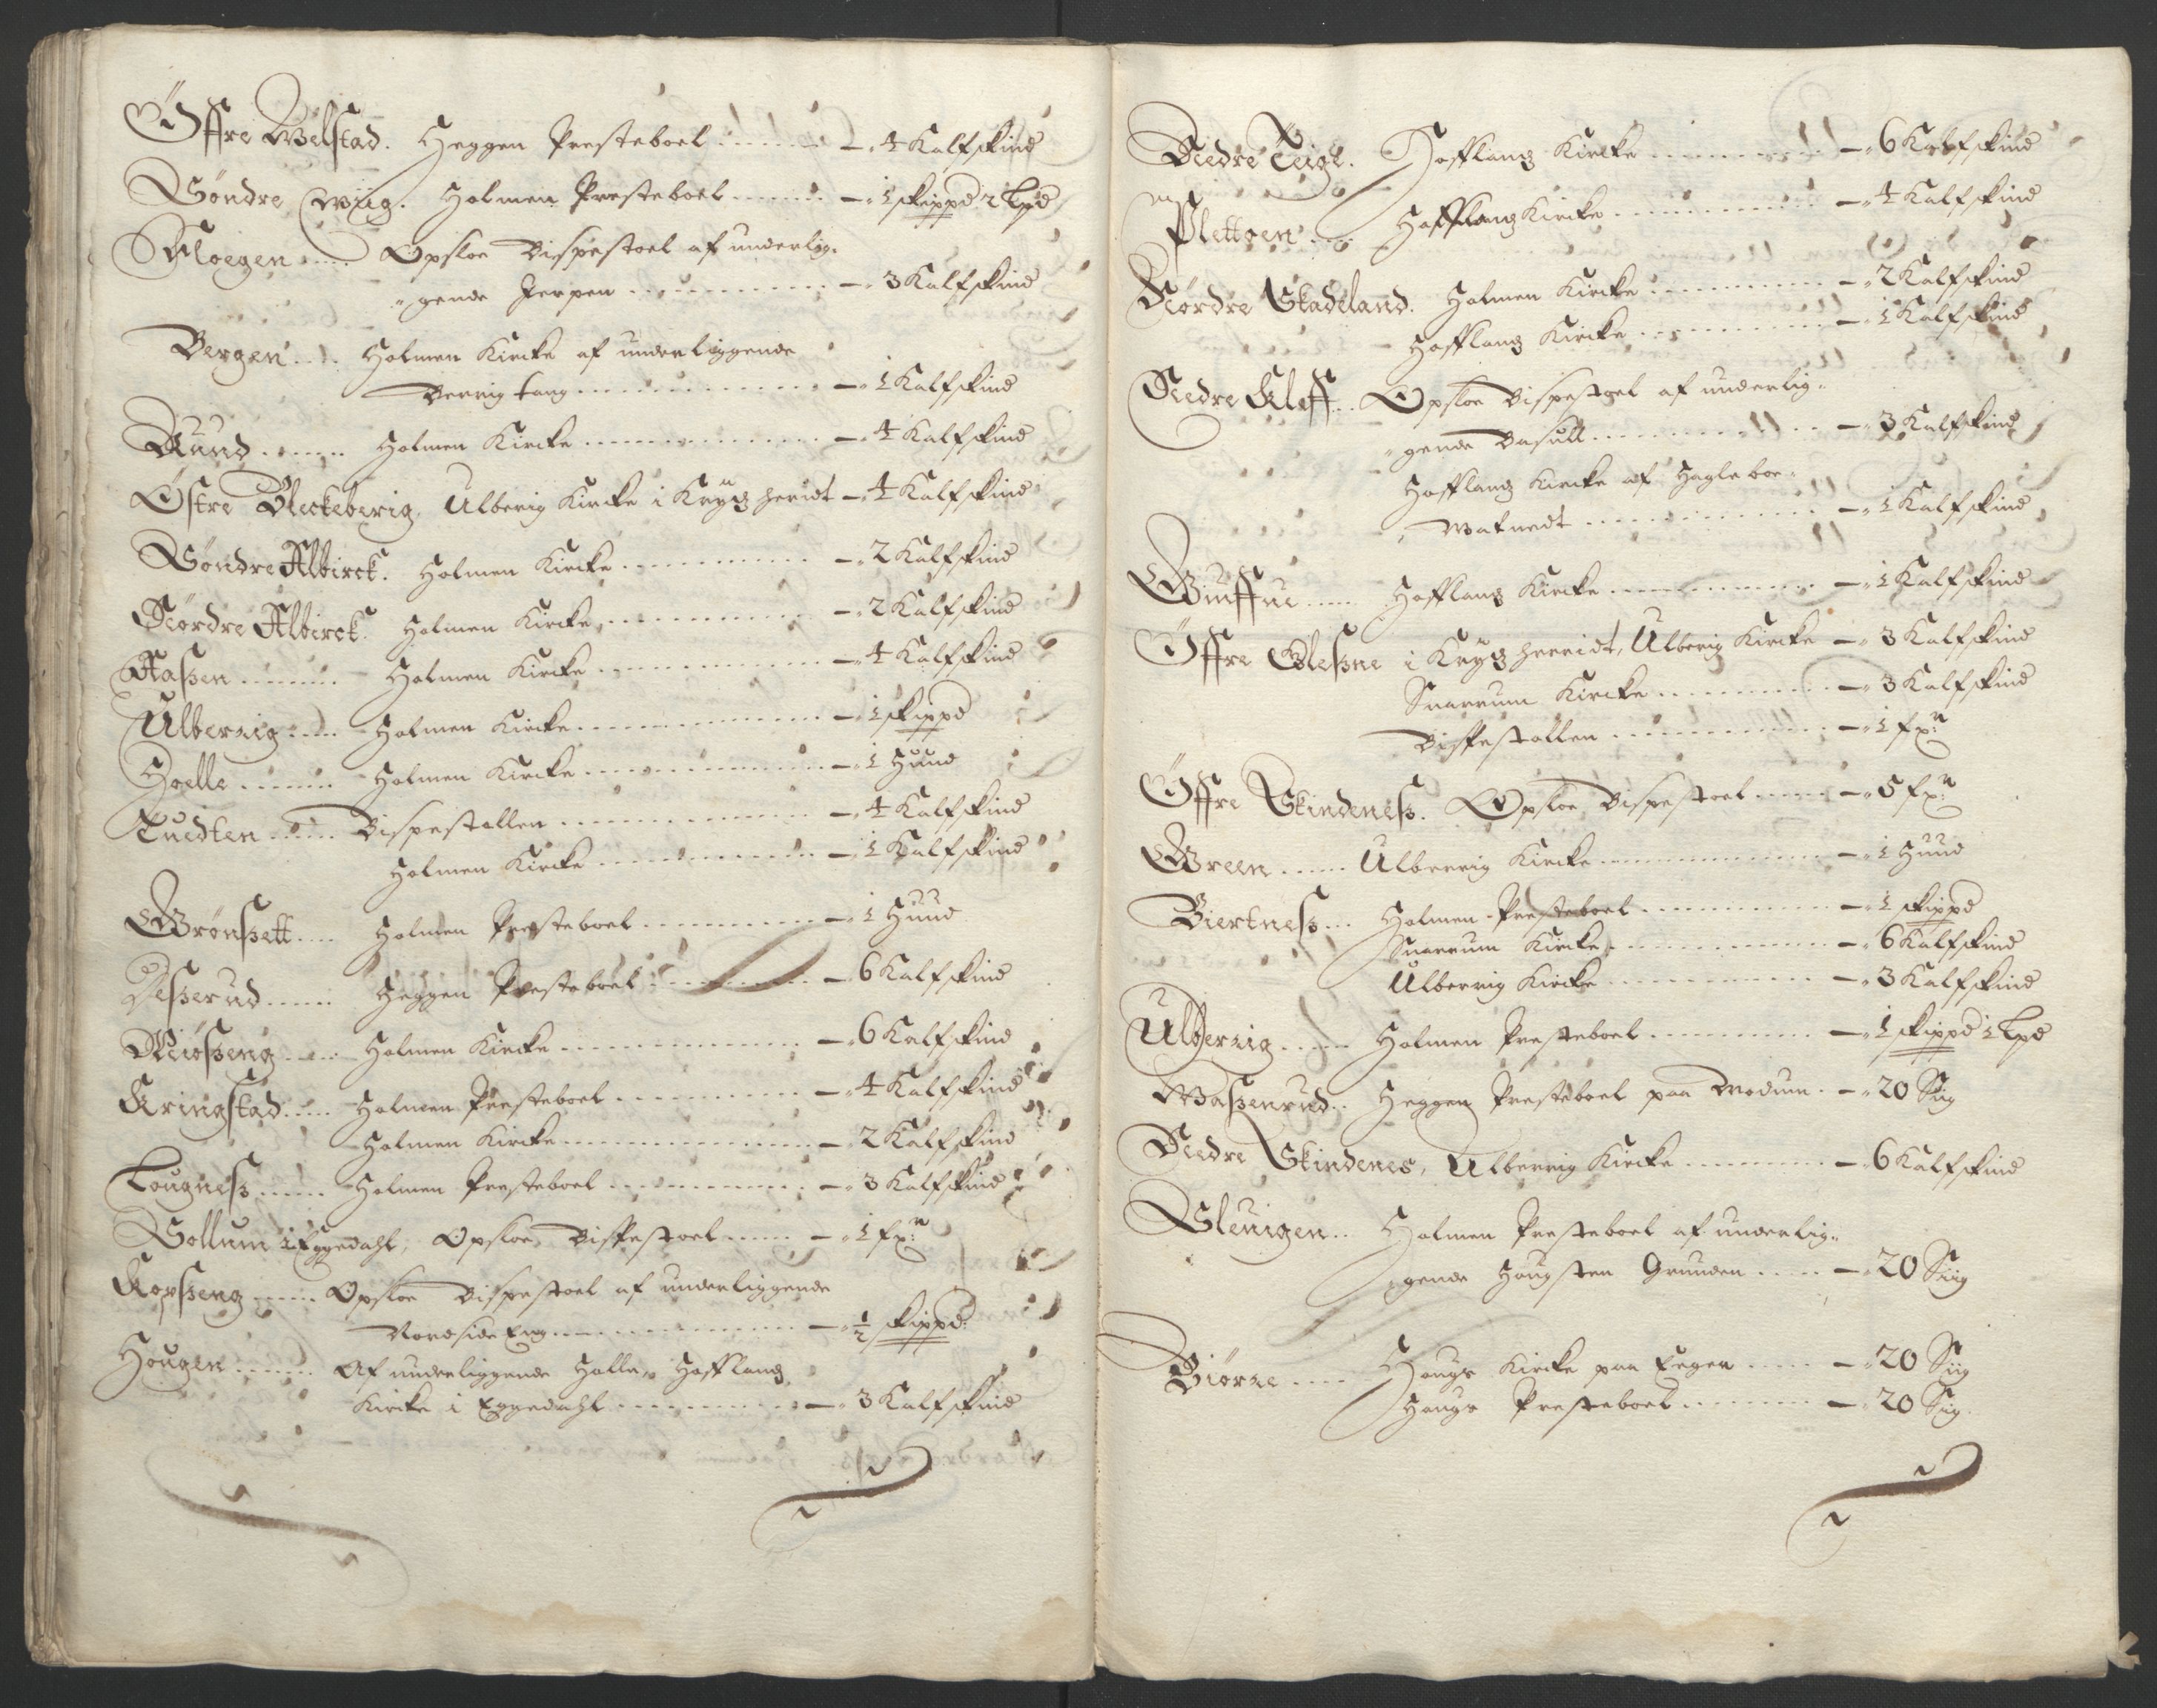 Øffre Welstad. Heggen Presteboel ...... – 4 Kalfskind
Søndre Wiig. Holmen Presteboel ...... – 1 skippd 2 Lpd
Floegen ..... Opsloe Bispestoel af underlig-
gende Jerpen ............ – 3 Kalfskind
Bergen .... Holmen Kircke af underliggende
Berrig tang ............... – 1 Kalfskind
Ruud ...... Holmen Kircke ............... – 4 Kalfskind
Østre Bleckeberig, Ulberig Kircke i Krydz herridt – 4 Kalfskind
Søndre Albirck. Holmen Kircke ............ – 2 Kalfskind
Nørdre Albirck. Holmen Kircke ............ – 2 Kalfskind
Aaszen ....... Holmen Kircke ............ – 4 Kalfskind
Ulberrig ..... Holmen Kircke ............... – 1 skippd
Hoelle ....... Holmen Kircke ............... – 1 Huud
Tuedten ...... Bispestollen ............... – 4 Kalfskind
Holmen Kircke ............ – 1 Kalfskind
Grønszett .... Holmen Presteboel ............ – 1 Huud
Deszerud ...... Heggen Presteboel ............ – 6 Kalfskind
Miøszeng ..... Holmen Kircke ............... – 6 Kalfskind
Kringstad ..... Holmen Presteboel ............ – 4 Kalfskind
Holmen Kircke ............... – 2 Kalfskind
Lougnesz ...... Holmen Presteboel ............ – 3 Kalfskind
Sollum i Eggedahl, Opsloe Bispestoel ...... – 1 fx:n
Kopszeng ..... Opsloe Bispestoel af underliggende
Nordside Eng ............... – ½ skippd:
Hougen ...... Af underliggende Holle, Hofflang
Kircke i Eggedahl ............ – 3 Kalfskind
Nedre Teigl. Hofflang Kircke ............ – 6 Kalfskind
Plettoen .... Hofflang Kircke ............ – 4 Kalfskind
Nørdre Stadeland. Holmen Kircke ............ – 2 Kalfskind
Hofflang Kircke ............ – 1 Kalfskind
Nedre Kleff .. Opsloe Bispestoel af underlig-
gende Basull ............... – 3 Kalfskind
Hofflang Kircke af Hagleboe-
watnedt ............... – 1 Kalfskind
Guffue ..... Hofflang Kircke ............ – 1 Kalfskind
Øffre Gleszne i Krydz herridt, Ulberig Kircke – 3 Kalfskind
Snarrum Kircke ............ – 3 Kalfskind
Bispestollen ............... – 1 fx:n
Øffre Skindenesz. Opsloe Bispestoel ...... – 5 fx:n
Green ...... Ulberrig Kircke ............... – 1 Huud
Biertnesz ... Holmen Presteboel ............ – 1 skippd
Snarrum Kircke ............... – 6 Kalfskind
Ulberrig Kircke ............... – 3 Kalfskind
Ulberrig ...... Holmen Presteboel ............ – 1 skippd 1 Lpd
Maszenrud .. Heggen Presteboel paa Modum. – 20 Siig
Nedre Skindenes, Ulberrig Kircke ......... – 6 Kalfskind
Sleuigen .. Holmen Presteboel af underlig-
gende Hougsten Grunden ..... – 20 Siig
Biørze .... Hougs Kircke paa Eeger ..... – 20 Siig
Hougs Presteboel ......... – 20 Siig.